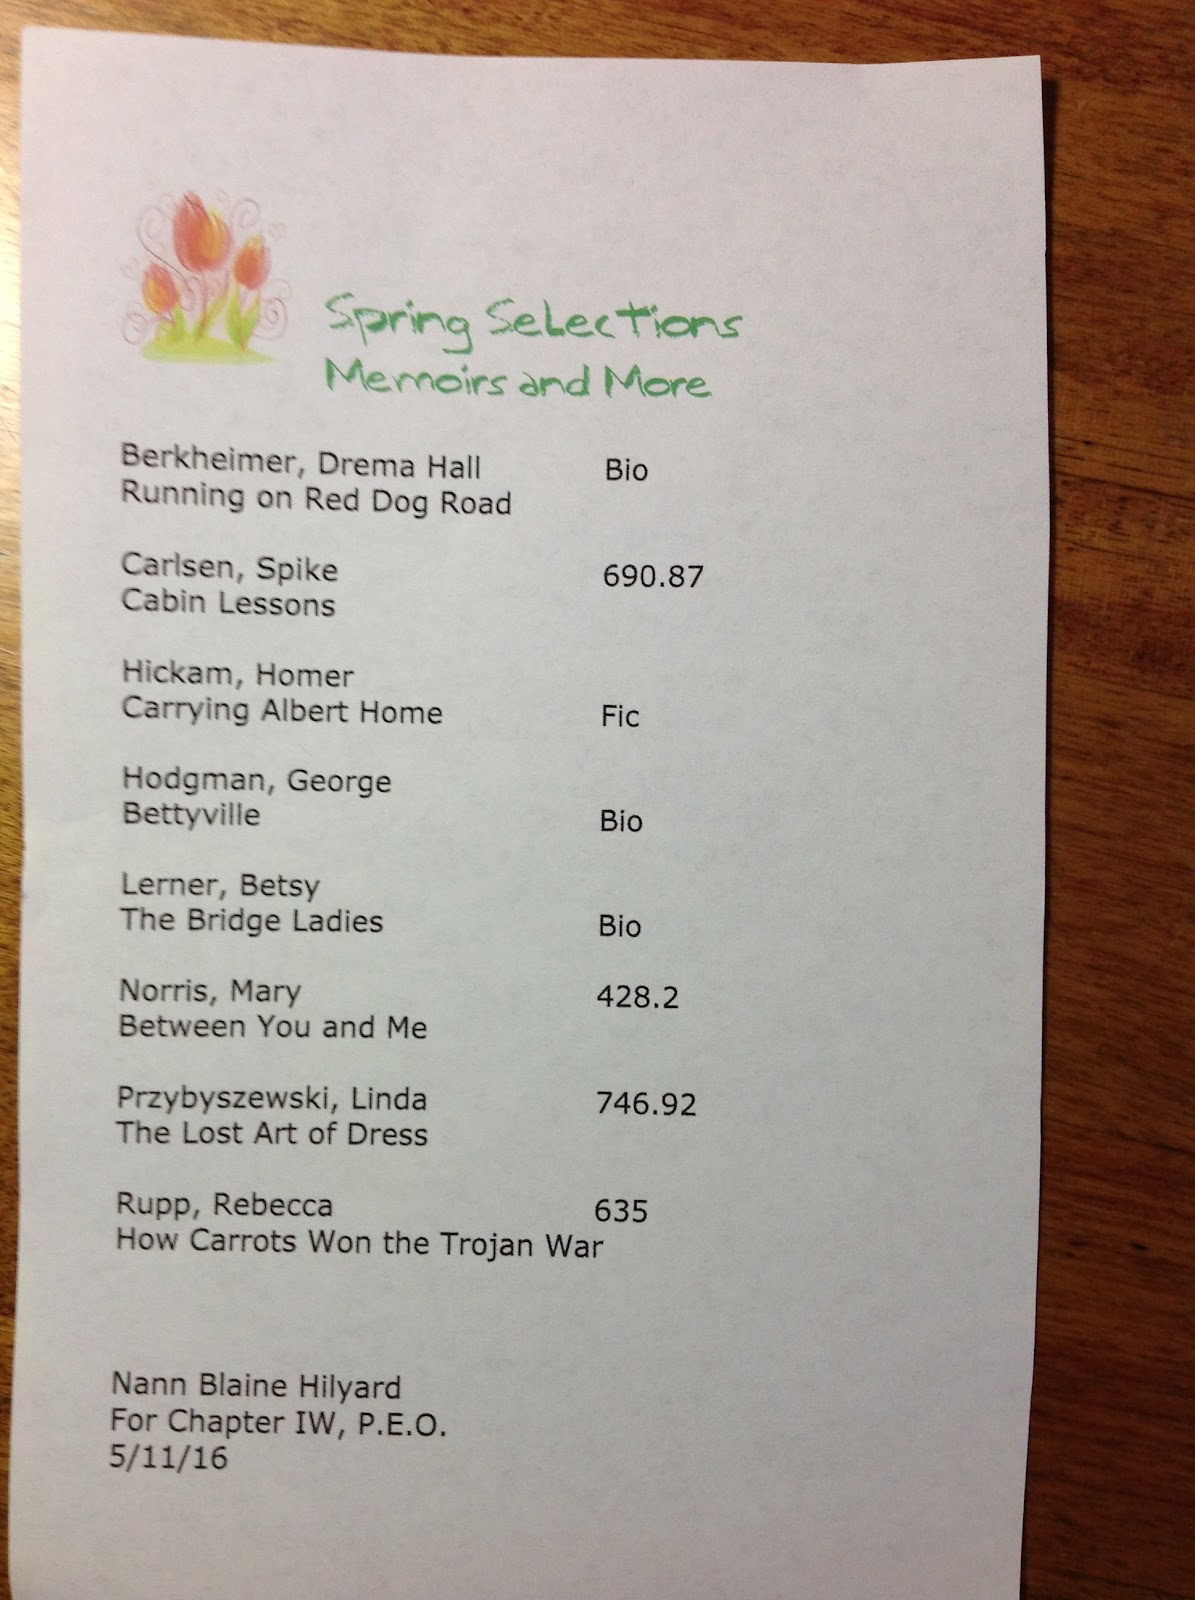 Spring Selections
Memoirs and More
Berkheimer, Drema Hall Bio
Running on Red Dog Road
Carlsen, Spike 690.87
Cabin Lessons
Hickam, Homer
Carrying Albert Home Fic
Hodgman, George
Bettyville Bio
Lerner, Betsy
The Bridge Ladies Bio
Norris, Mary 428.2
Between You and Me
Przybyszewski, Linda 746.92
The Lost Art of Dress
Rupp, Rebecca 635
How Carrots Won the Trojan War
Nann Blaine Hilyard
For Chapter IW, P.E.O.
5/11/16